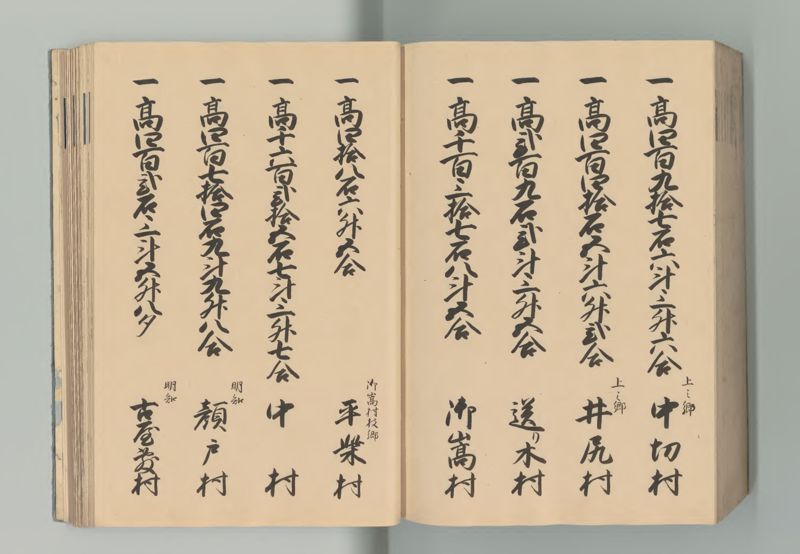 一 高四百九拾七石六斗三升六合 上之郷 中切村
一 高四百四拾石五斗六升弐合 上之郷 井尻村
一 高弐百九石弐斗三升五合 送り木村
一 高千百三拾七石八斗五合 御嵩村
一 高四拾八石六升五合 御嵩村枝郷 平柴村
一 高千六百弐拾五石七斗三升七合 中村
一 高四百七拾四石九斗九升八合 明知 顔戸村
一 高四百弐石三斗五升八夕 明知 古屋敷村